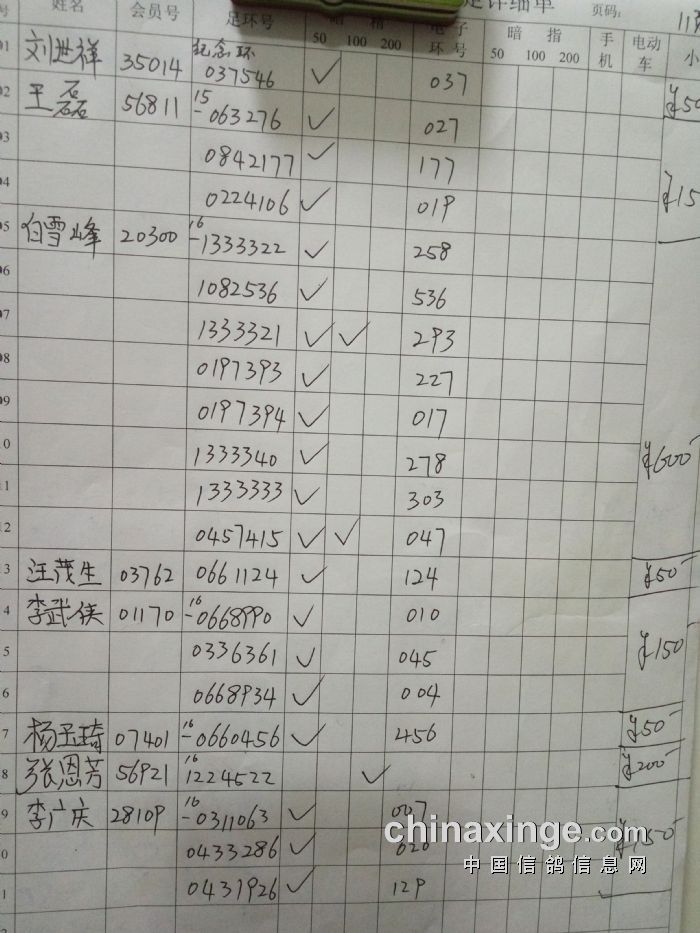 足详细单 页码: 11
号 姓名 会员号 足环号 暗 指 电子环号 暗 指 手机 电动车 小
50 100 200 50 100 200
01 刘世祥 35014 纪念环 037546 ✓ 037 ¥50
02 王磊 56811 15-063276 ✓ 027
03 0842177 ✓ 177 ¥15
04 0224106 ✓ 019
05 白雪峰 20300 16-1333322 ✓ 258
06 1082536 ✓ 536
07 1333321 ✓ ✓ 293
08 0197393 ✓ 227
09 0197394 ✓ 017
10 1333340 ✓ 278 ¥600
11 1333333 ✓ 303
12 0457415 ✓ ✓ 047
13 汪茂生 03762 0661124 ✓ 124 ¥50
4 李武侠 01170 16-0668990 ✓ 010
5 0336361 ✓ 045 ¥150
6 0668934 ✓ 004
7 杨玉琦 07401 16-0660456 ✓ 456 ¥50
8 张恩芳 56921 16 1224522 ✓ ¥200
9 李广庆 28109 16-0311063 ✓ 007
chinaxinge.com
0 0433286 ✓ 020 ¥150
中国信鸽信息网
1 0431926 ✓ 129